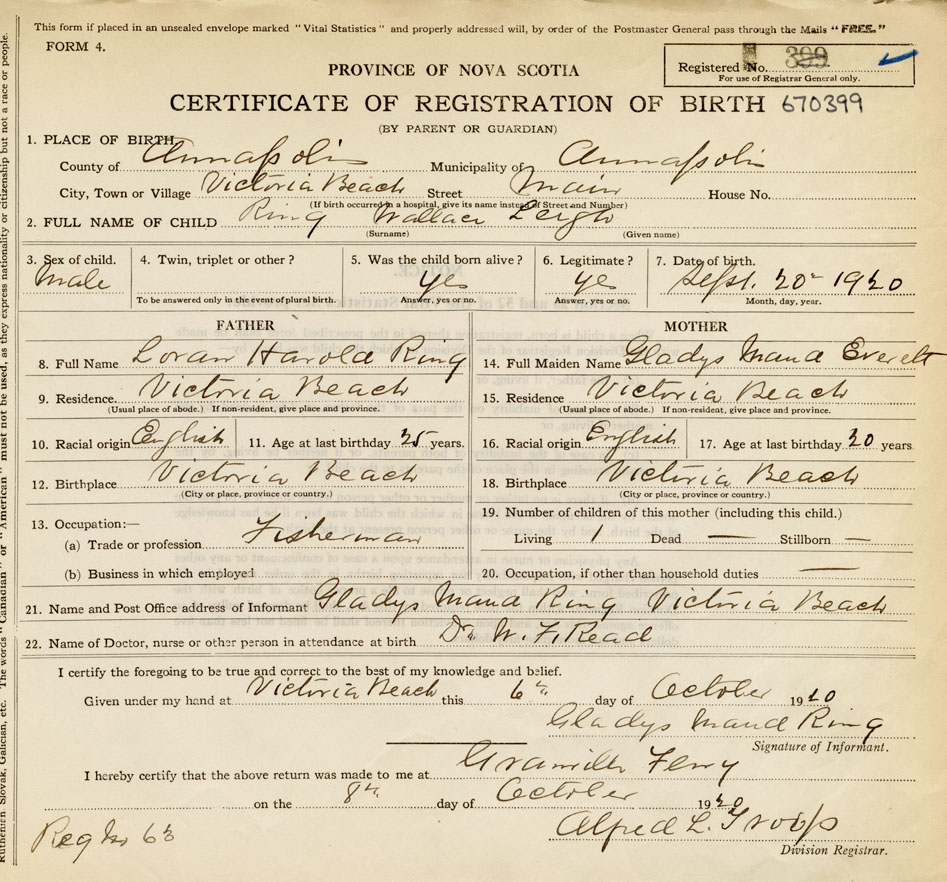 This form if placed in an unsealed envelope marked "Vital Statistics" and properly addressed will, by order of the Postmaster General pass through the Mails "FREE."
FORM 4.
Registered No. 399
For use of Registrar General only.
PROVINCE OF NOVA SCOTIA
CERTIFICATE OF REGISTRATION OF BIRTH 670399
(BY PARENT OR GUARDIAN)
1. PLACE OF BIRTH
County of Annapolis Municipality of Annapolis
City, Town or Village Victoria Beach Street Main House No.
(If birth occurred in a hospital, give its name instead of Street and Number)
2. FULL NAME OF CHILD Ring Wallace Leigh
(Surname) (Given name)
3. Sex of child. 4. Twin, triplet or other? 5. Was the child born alive? 6. Legitimate? 7. Date of birth.
Male yes yes Sept. 20 1920
To be answered only in the event of plural birth. Answer, yes or no. Answer, yes or no. Month, day, year.
FATHER
8. Full Name Loran Harold Ring
9. Residence. Victoria Beach
(Usual place of abode.) If non-resident, give place and province.
10. Racial origin English 11. Age at last birthday 25 years.
12. Birthplace Victoria Beach
(City or place, province or country.)
13. Occupation:—
(a) Trade or profession Fisherman
(b) Business in which employed
MOTHER
14. Full Maiden Name Gladys Maud Everett
15. Residence Victoria Beach
(Usual place of abode.) If non-resident, give place and province.
16. Racial origin English 17. Age at last birthday 20 years
18. Birthplace Victoria Beach
(City or place, province or country.)
19. Number of children of this mother (including this child.)
Living 1 Dead — Stillborn —
20. Occupation, if other than household duties —
21. Name and Post Office address of Informant Gladys Maud Ring Victoria Beach
22. Name of Doctor, nurse or other person in attendance at birth Dr. W. F. Read
I certify the foregoing to be true and correct to the best of my knowledge and belief.
Given under my hand at Victoria Beach this 6th day of October 1920
Gladys Maud Ring
Signature of Informant.
I hereby certify that the above return was made to me at Granville Ferry
on the 8th day of October 1920
Alfred L. Troop
Division Registrar.
Reg No 63
Ruthenian, Slovak, Galician, etc. The words "Canadian" or "American" must not be used, as they express nationality or citizenship but not a race or people.